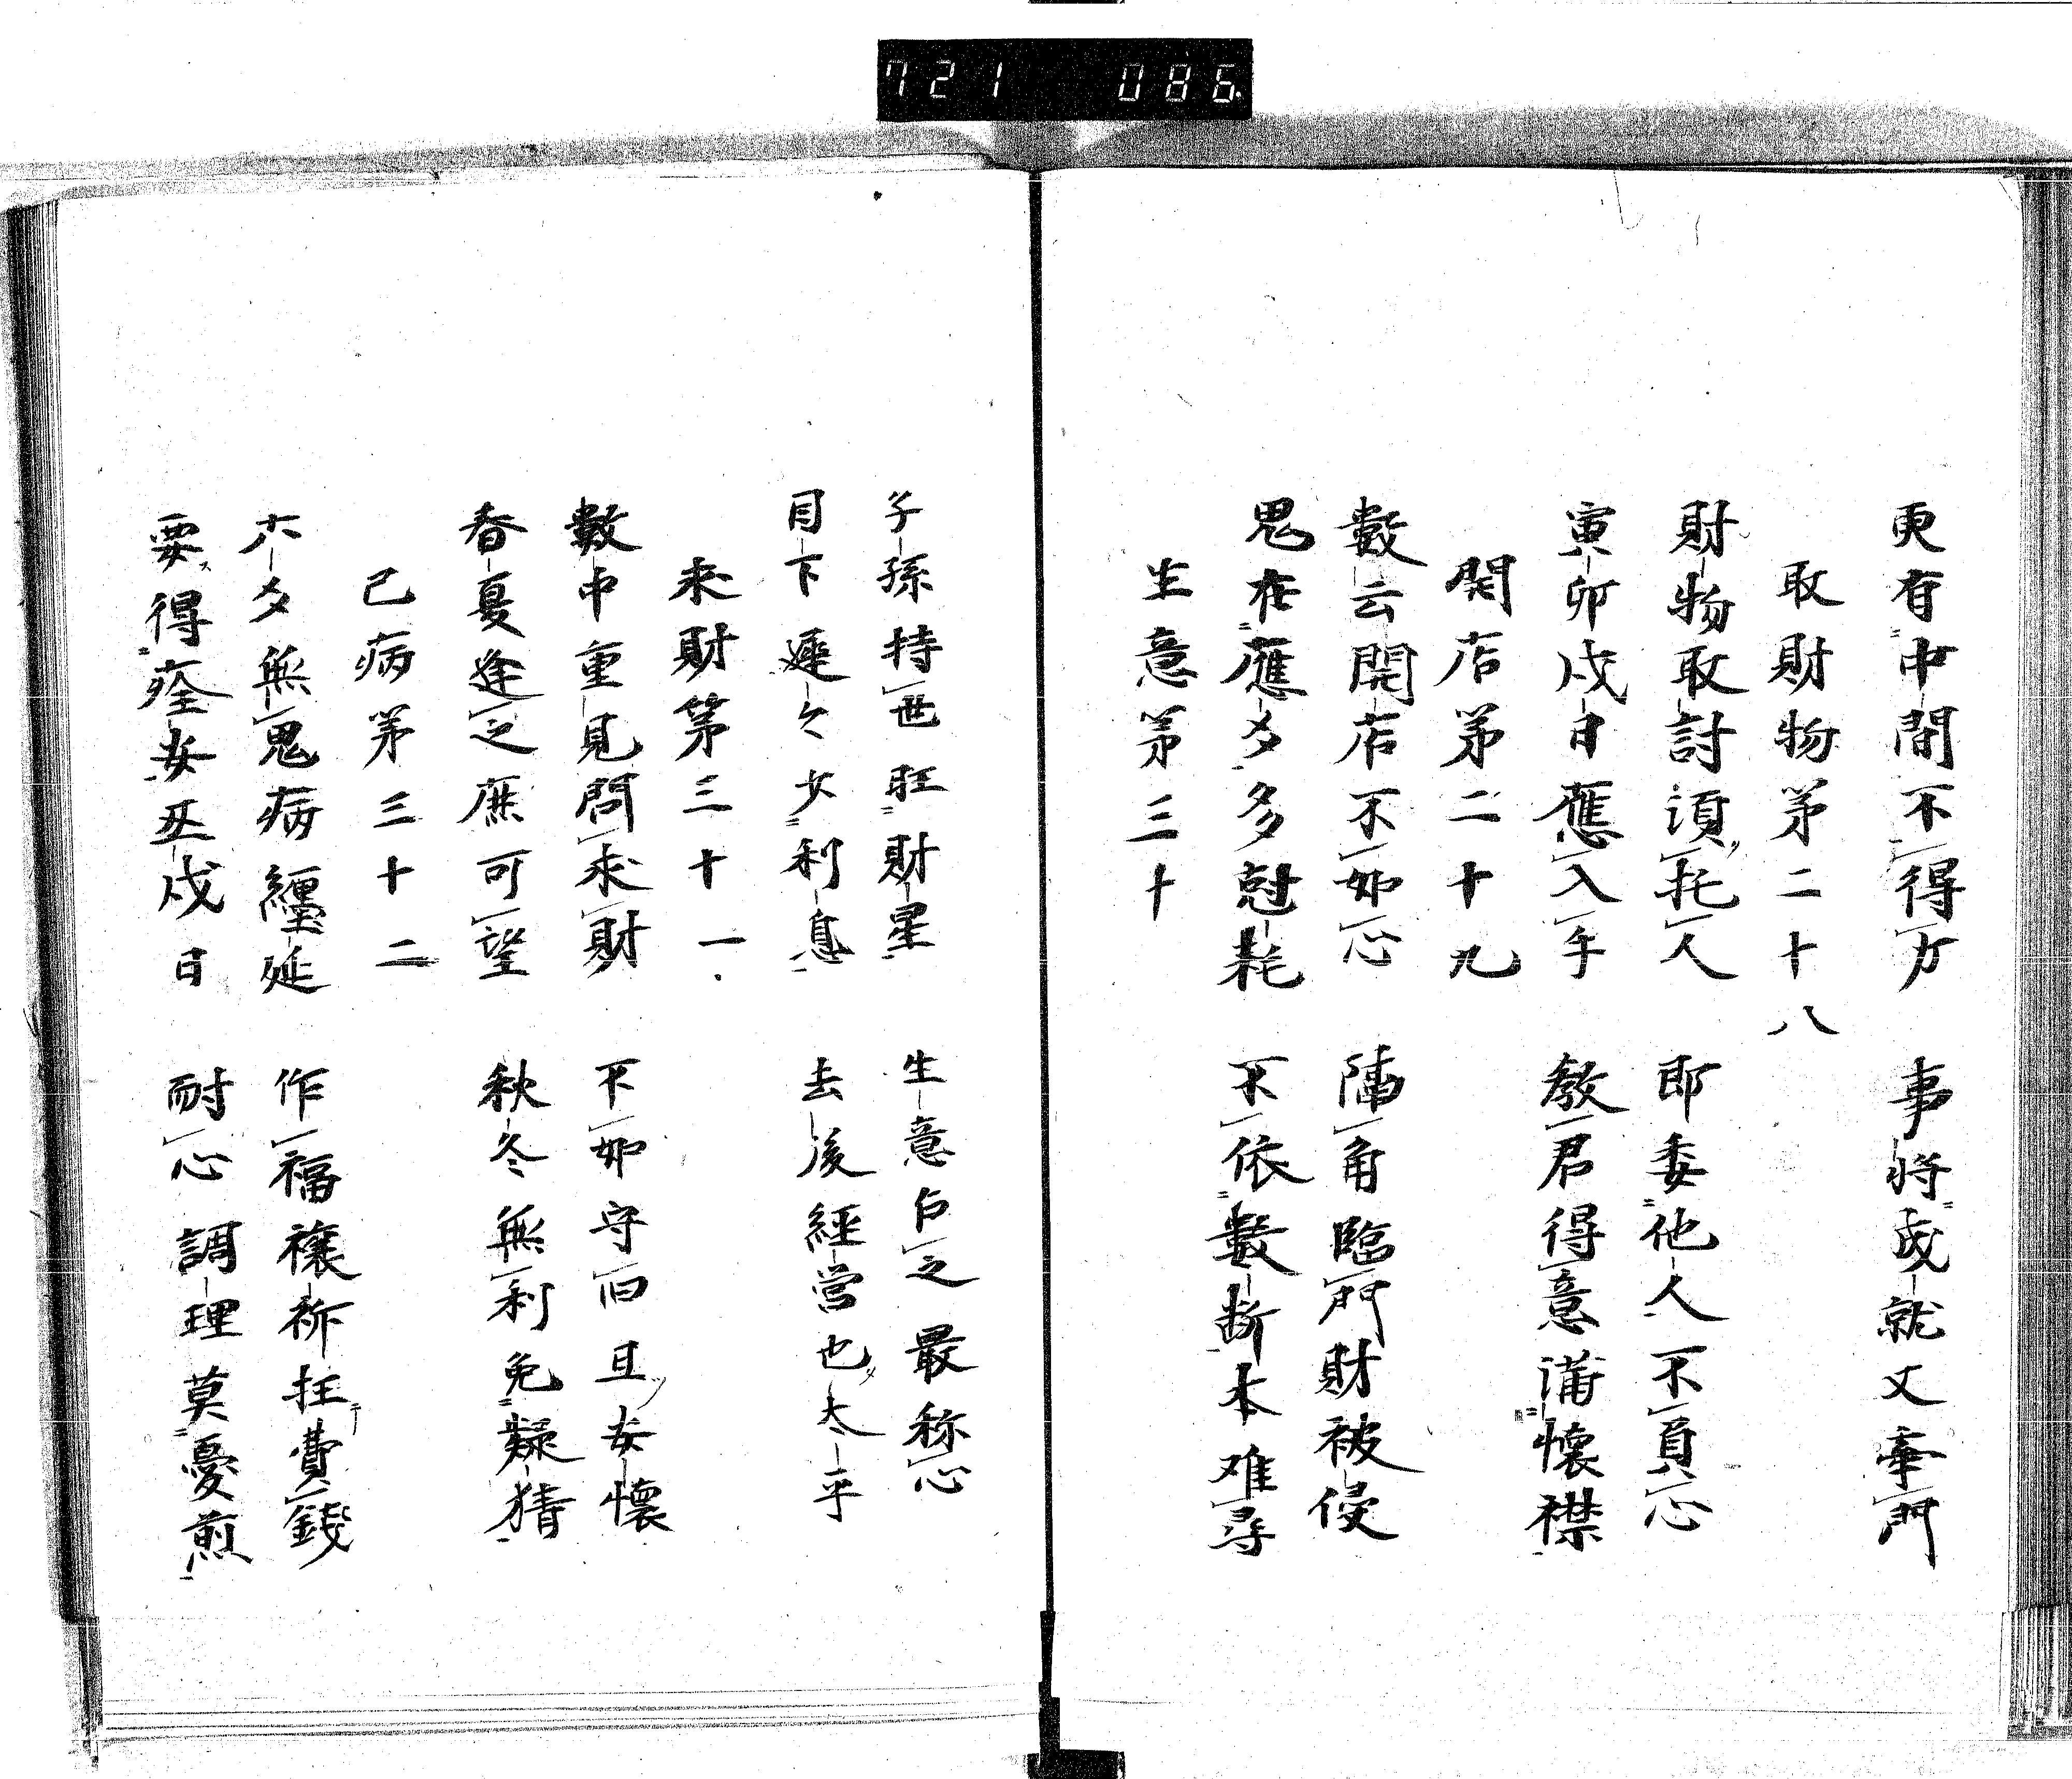 721 086
更有中間不得力 事将成就又牽門
取財物第二十八
財物取討須托人 即委他人不負心
寅卯戌日應入手 教君得意滿懷襟
開店第二十九
數云開店不如心 隔角臨門財被侵
鬼在應爻多尅耗 不依數断本难尋
生意第三十
子孫持世旺財星 生意占之最称心
目下遲々少利息 去後經营也太平
求財第三十一
數中重見問求財 不如守旧且安懷
春夏逢之庶可望 秋冬無利免疑猜
己病第三十二
六爻無鬼病纏延 作福禳祈枉費錢
要得痊安丑戌日 耐心調理莫憂煎